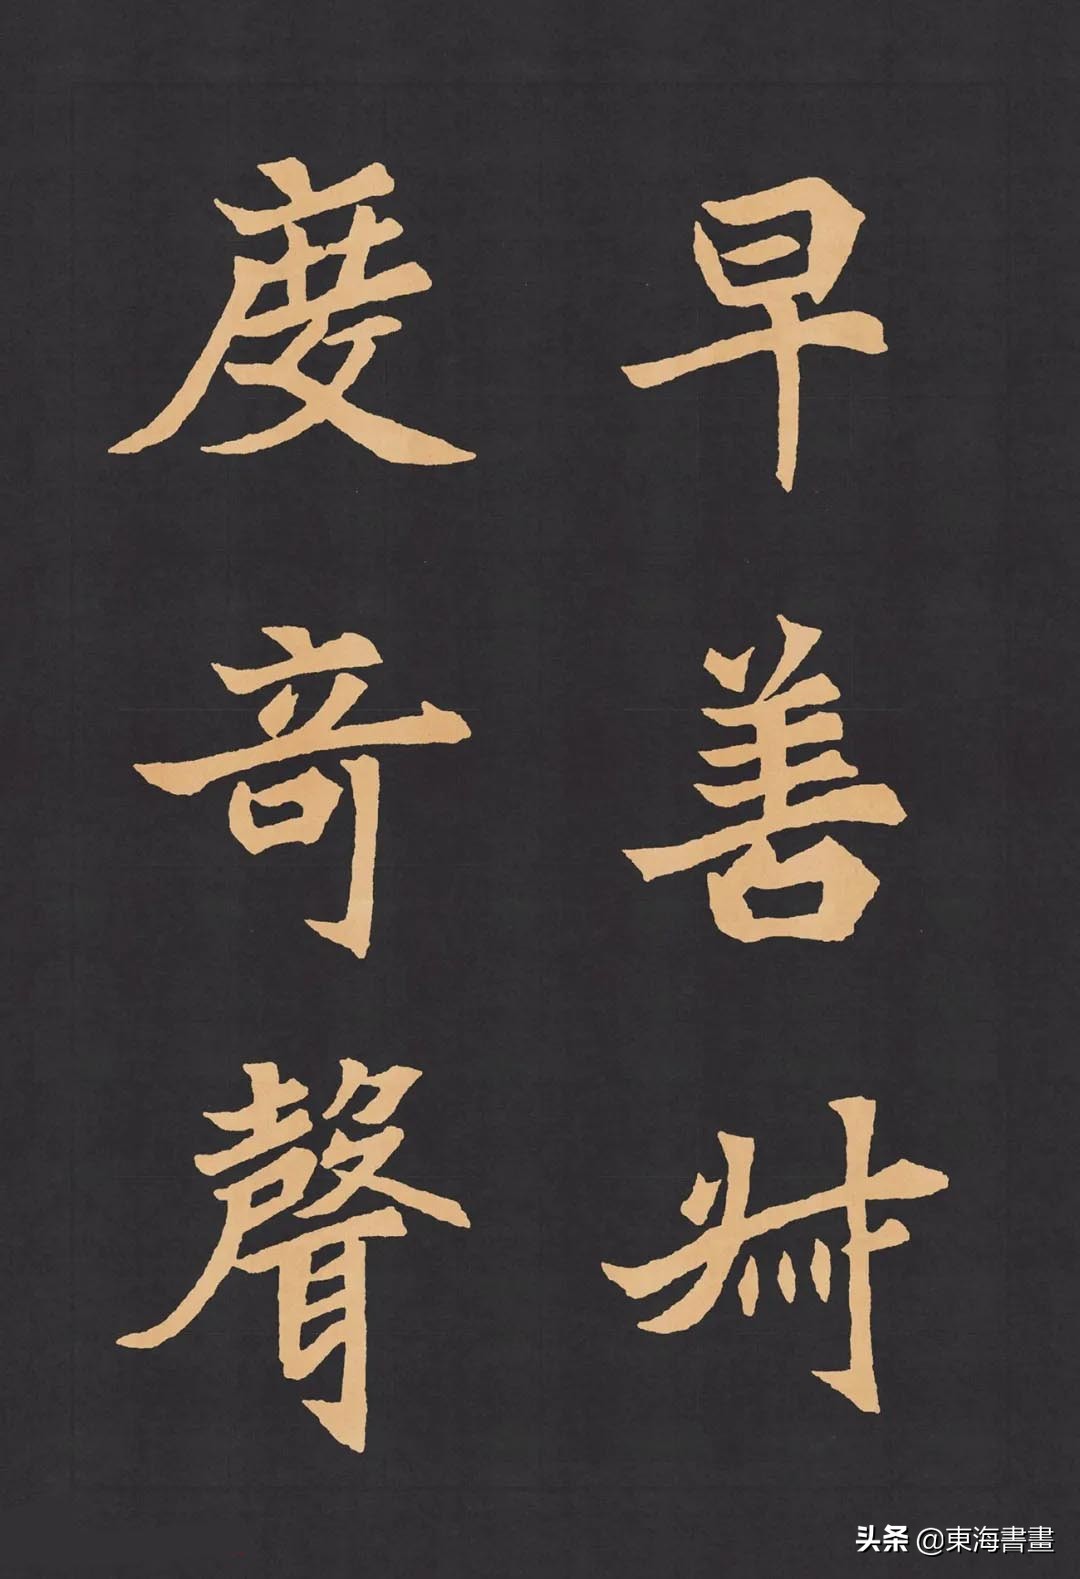 早善叔
度竒聲
头条 @東海書畫